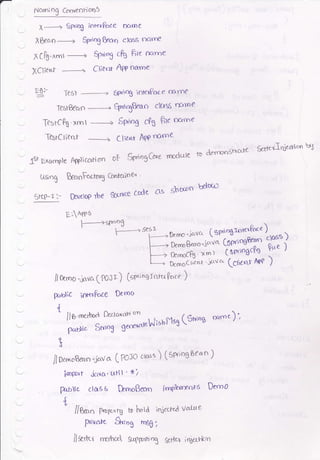 Naming Conventions
X ——→ Spring interface name
XBean ——→ SpringBean class name
XCfg.xml ——→ Spring cfg file name
XClient ——→ Client App name
EX:- Test ——→ Spring interface name
TestBean ——→ SpringBean class name
TestCfg.xml ——→ Spring cfg file name
TestClient ——→ Client App name
1st Example Application of SpringCore module to demonstrate SetterInjection by
using BeanFactory Container.
Step-1:- Develop the Source Code as shown below
E:\Apps
→spring
→ses1
→ Demo.java (springInterface)
→ DemoBean.java (springBean class)
→ DemoCfg.xml (springcfg file)
→ DemoClient.java (client App)
//Demo.java (POJI) (springInterface)
public interface Demo
{
//B.method Declaration
public String generateWishMsg (String name);
}
//DemoBean.java (POJO class) (SpringBean)
import java.util.*;
public class DemoBean implements Demo
{
//Bean property to hold injected value
private String msg;
//setter method supporting setter injection